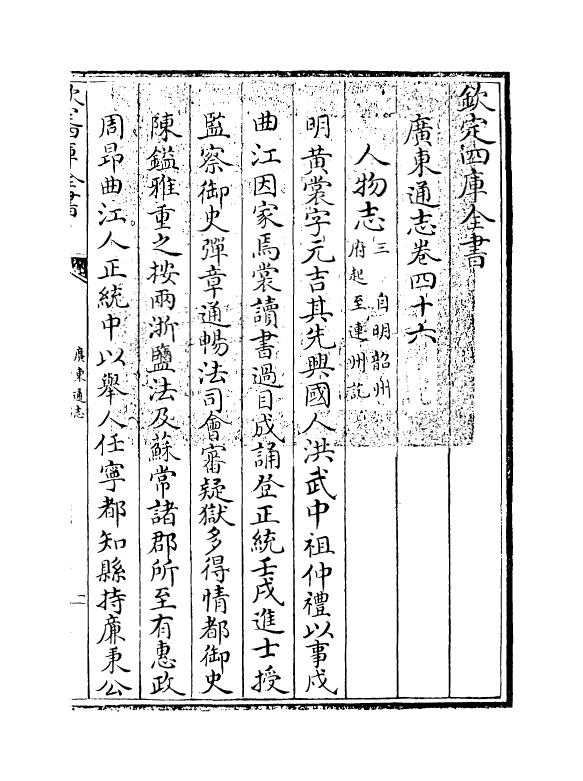 欽定四庫全書
廣東通志卷四十六
人物志三 自明韶州府起至連州訖
明黄裳字元吉其先興國人洪武中祖仲禮以事戍
曲江因家焉裳讀書過目成誦登正統壬戌進士授
監察御史彈章通暢法司會審疑獄多得情都御史
陳鎰雅重之按兩浙鹽法及蘇常諸郡所至有惠政
周昻曲江人正統中以舉人任寧都知縣持廉秉公
廣東通志